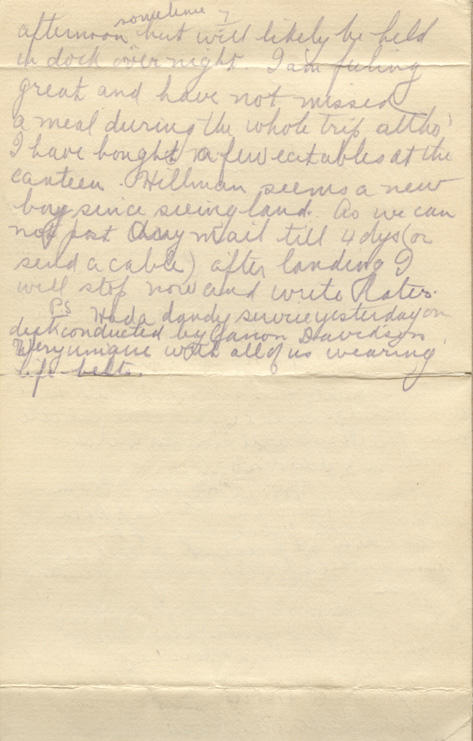 sometime
afternoon but will likely be held
in dock overnight. I am feeling
great and have not missed
a meal during the whole trip altho'
I have bought a few eatables at the
canteen. Hillman seems a new
boy since seeing land. As we can
not post any mail till 4 dys (or
send a cable) after landing I
will stop now and write later.
PS Had a dandy service yesterday on
deck conducted by Canon Davidson.
Very unique with all of us wearing
life belts.